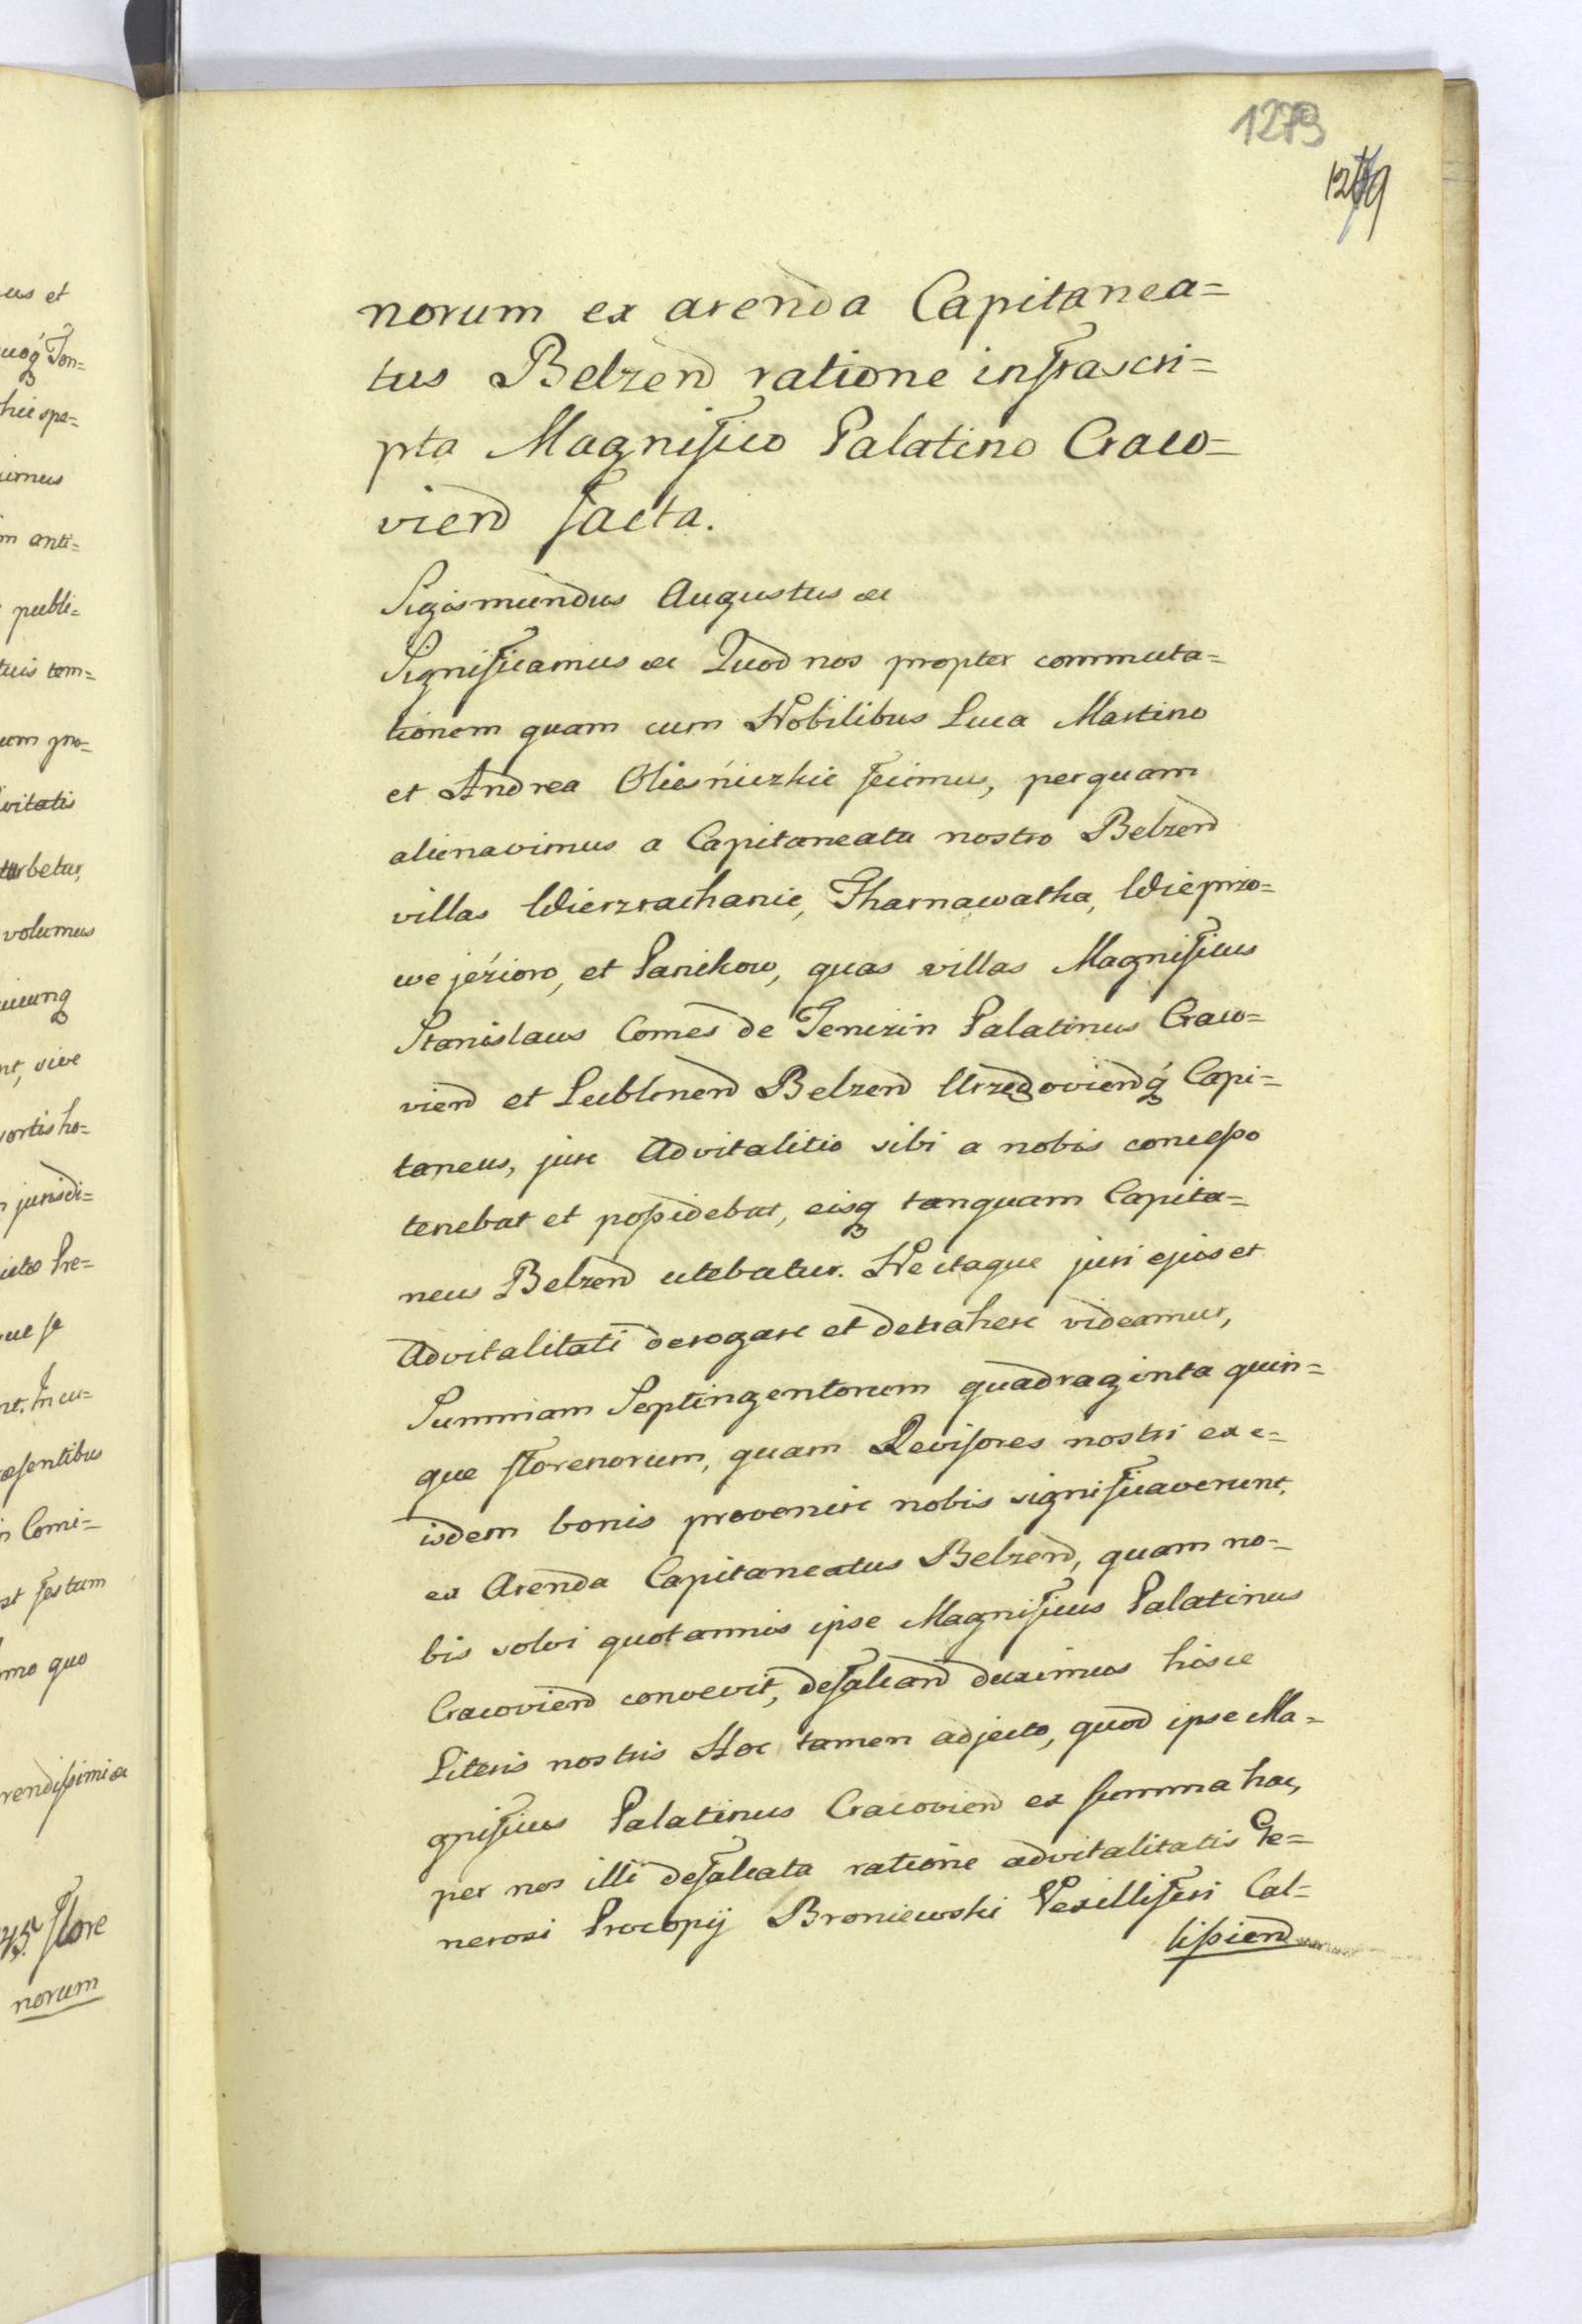 1273
1279
norum ex arenda Capitanea=
tus Belzend ratione infrascri=
pta Magnifico Palatino Craco=
viend facta.
Sigismundus Augustus &c
Significamus &c Quod nos propter commuta=
tionem quam cum Nobilibus Luca Martino
et Andrea Oliesniczkie fecimus, per quam
alienavimus a Capitaneatu nostro Belzend
villas Wierzrachanie, Tharnawatka, Wieprzo=
we jezioro, et Panikow, quas villas Magnificus
Stanislaus Comes de Tenczin Palatinus Craco=
viend et Lublinend Belzend Urzedoviendq Capi=
taneus, jure Advitalitio sibi a nobis concesso
tenebat et possidebat, eisq tanquam Capita=
neus Belzend utebatur. Ne itaque juri ejus et
Advitalitati derogare et detrahere videamur,
Summam Septingentorum quadraginta quin=
que florenorum, quam Revisores nostri ex e=
isdem bonis provenire nobis significaverunt,
ex Arenda Capitaneatus Belzend, quam no=
bis solvi quotannis ipse Magnificus Palatinus
Cracoviend convevit, defalcand duximus hisce
Literis nostris Hoc tamen adjecto, quod ipse Ma=
gnificus Palatinus Cracoviend ex summa hac,
per nos illi defalcata ratione advitalitatis Ge=
nerosi Procopij Broniewski Vexilliferi Cal=
lissiend
us et
hic spe=
imus
m anti=
publi=
tuis tem=
um pro=
vitatis
turbetur,
volumus
nt, sive
ortis ho=
jurisdi=
icto Pre=
ue se
nt. In cu=
æsentibus
n Comi=
st festum
mo quo
rendissimi &
45 flore
norum